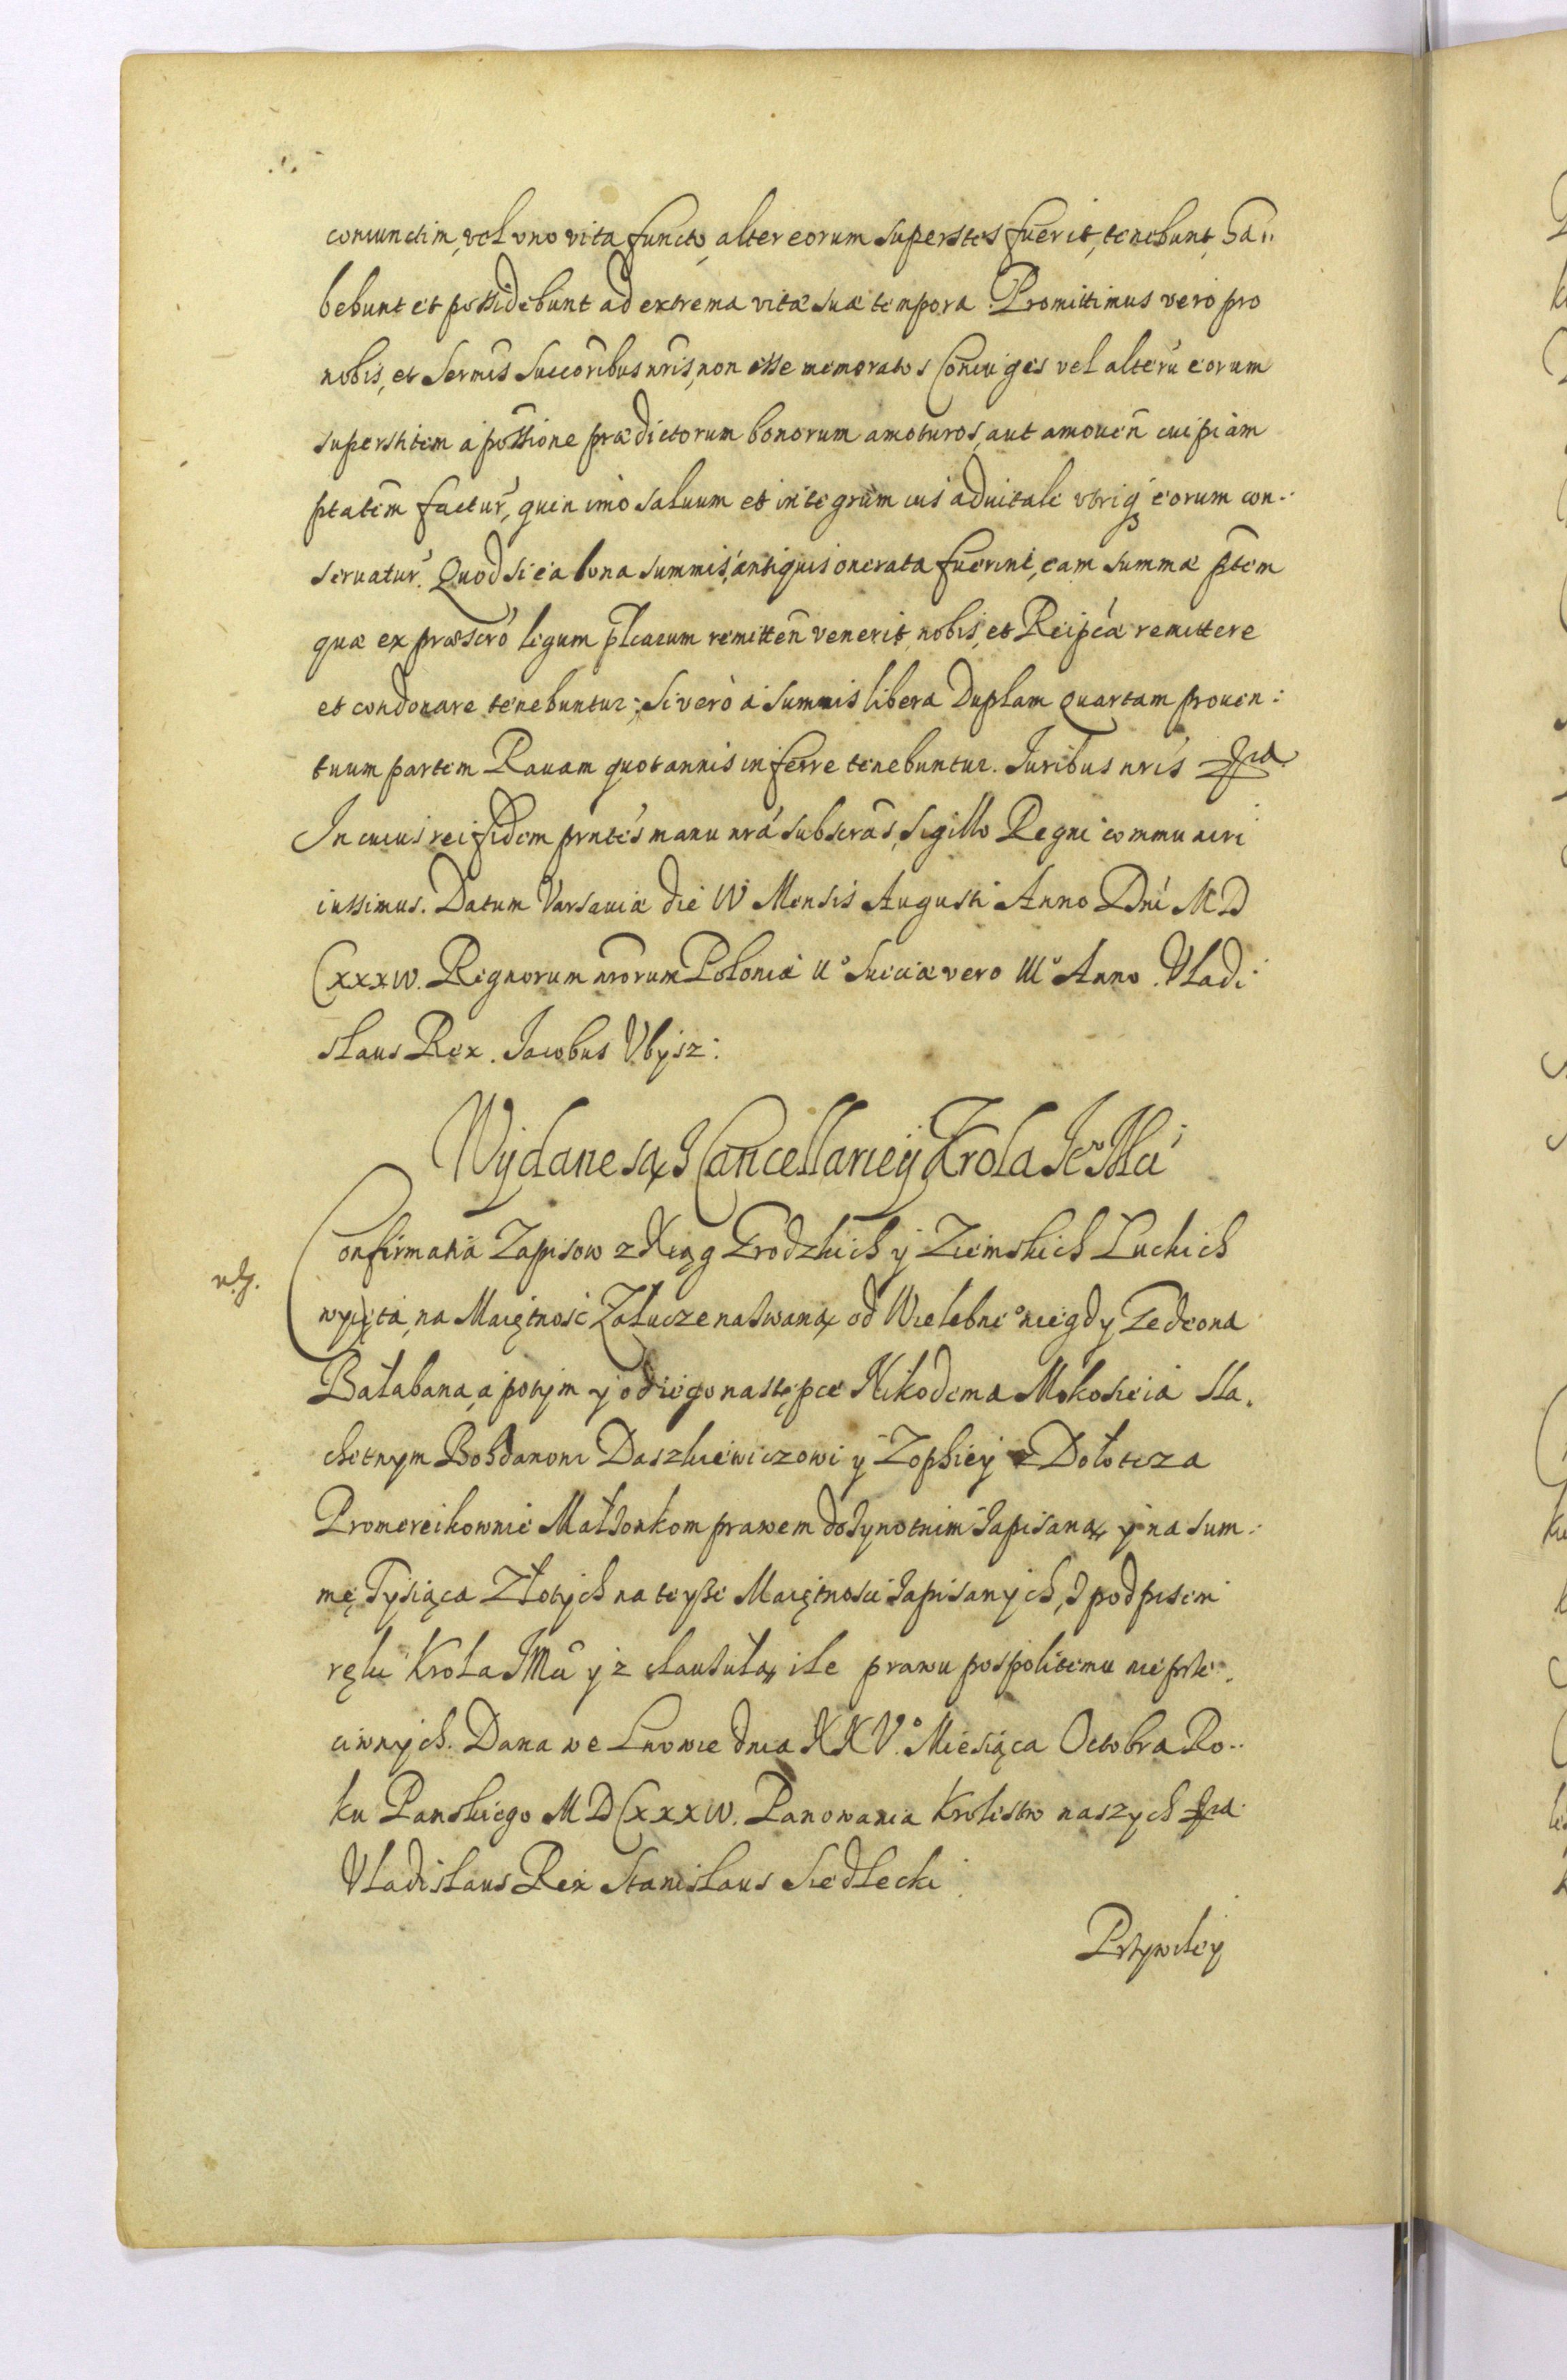 coniunctim, vel uno vita functo, alter eorum superstes fuerit, tenebunt, ha„
bebunt et possidebunt ad extrema vitæ suæ tempora. Promittimus vero pro
nobis, et Sermis Succoribus nris, non esse memoratos Coniuges vel alterū eorum
superstitem á possione prædictorum bonorum amoturos, aut amouen̄ cuipiam
ptatem factur̄, quin imo saluum et integrum ius aduitale vtriq̨ eorum con-
seruatur̄. Quod si ea bona summis antiquis onerata fuerint, eam summæ ptem
quæ ex præscro legum plicarum remitten̄ venerit, nobis, et Reipcæ remittere
et condonare tenebuntur; Si vero á summis libera Duplam quartam prouen:
tuum partem Rauam quotannis inferre tenebuntur. Juribus nris
In cuius rei fidem prntes manu nrá subscras, Sigillo Regni communiri
iussimus. Datum Varsauiæ die IV Mensis Augusti Anno Dni MD
CXXXIV. Regnorum nrorum Poloniæ IIº Sueciæ vero IIIº Anno. Vladi:
slaus Rex. Jacobus Vbysz:
Wydane są z Cancellariey Krola Jeº Mci
Confirmatia Zapisow z Xiąg Grodzkich y Ziemskich Luckich
wyięta, na Maiętność Załucze naswaną od Wielebneº niegdy Gedeona
Bałabana, a potym y od iego następce Nikodema Mokosieia sla.
chetnym Bohdanowi Daszkiewiczowi y Zophiey z Dołotcza
Promereikownie Małzonkom prawem dozywotnim zapisaną y na sum:
mę Tysiąca Złotych na teyże Maiętnosci zapisanych, z podpisem
ręki Krola JMci y z clausulą, ile prawu pospolitemu nieprze:
ciwnych. Dana we Lwowie dnia XXVº Miesiąca Octobra Ro-
ku Panskiego MDCXXXIV. Panowania Krolestw naszych
Vladislaus Rex Stanislaus Siedlecki
Przywiley